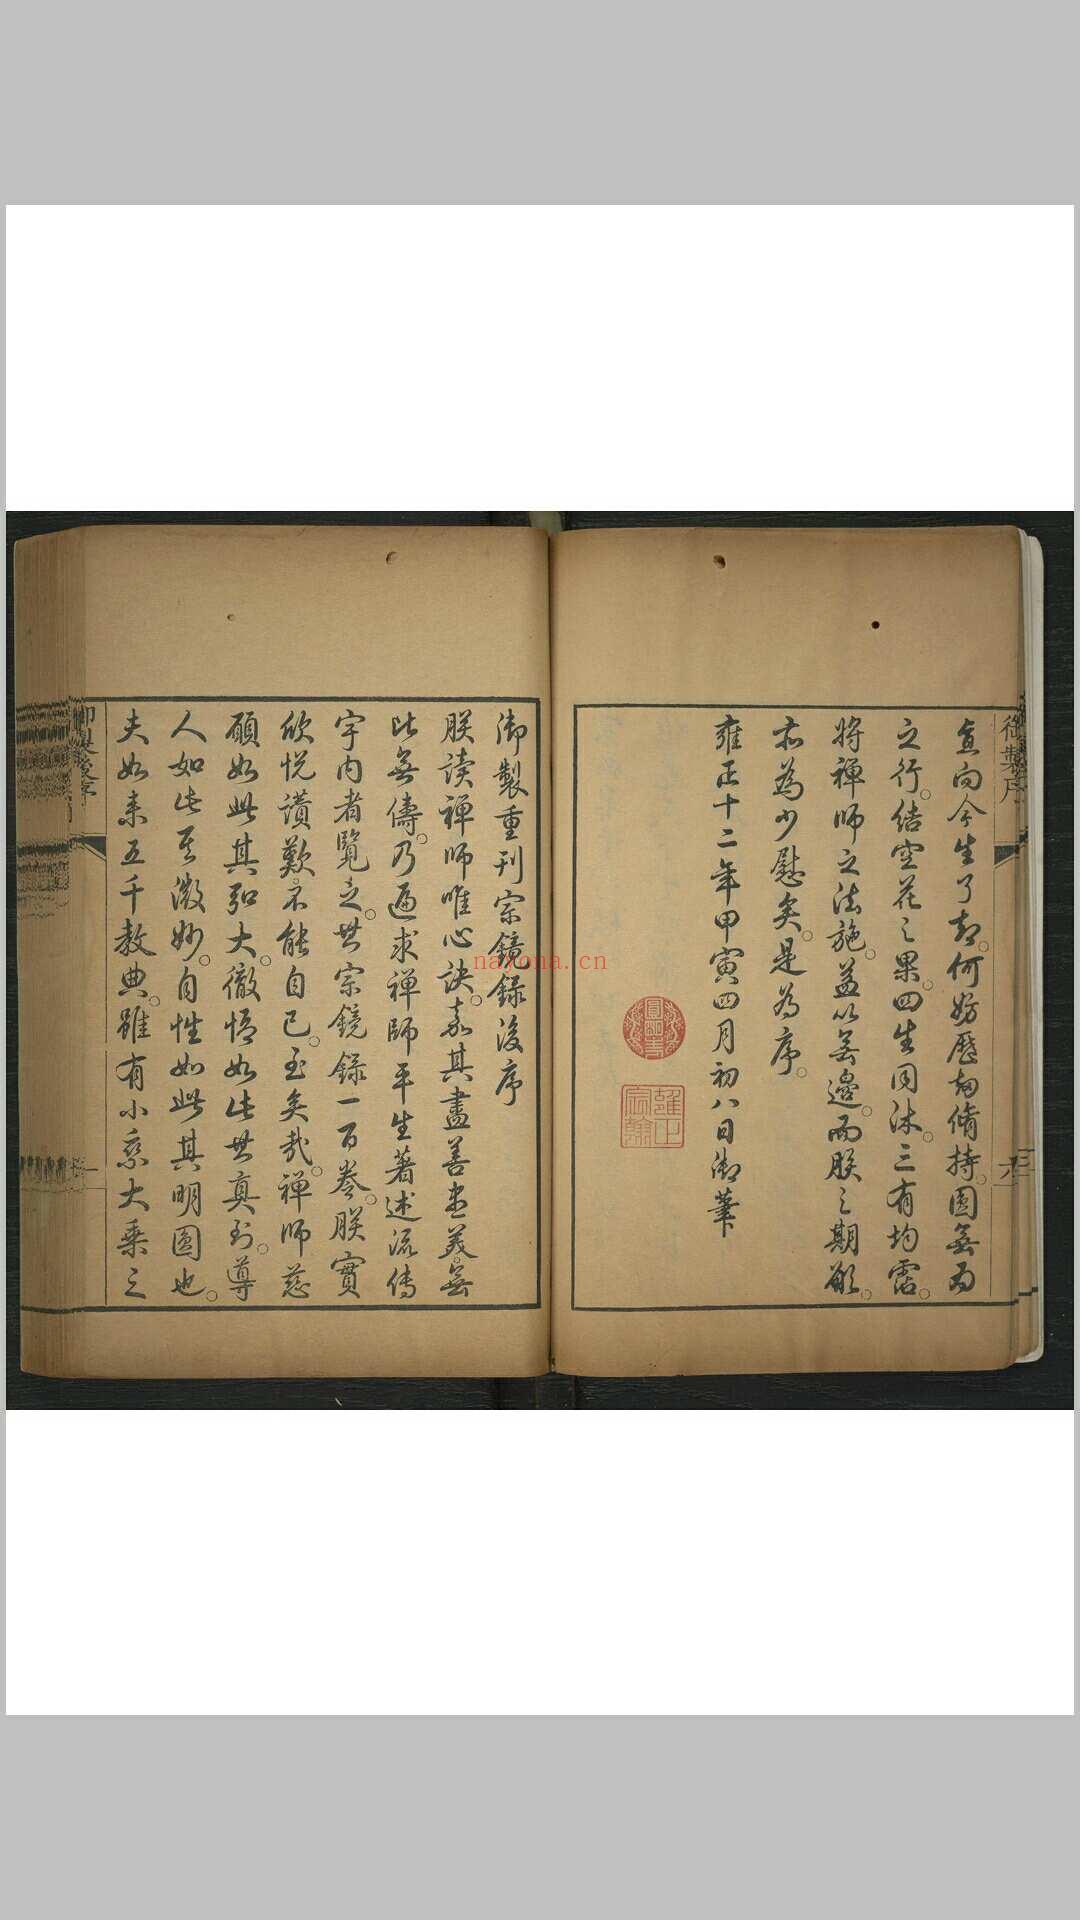 直向今生了却。何妨歷劫脩持。圓無為
之行。結空花之果。四生同沐。三有均霑。
將禪師之法施。益以無邊。而朕之期願。
亦為少慰矣。是為序。
雍正十二年甲寅四月初八日御筆
圓明主人
雍正宸翰
御製序
六
御製重刊宗鏡錄後序
朕讀禪師唯心訣。嘉其盡善盡美。無
比無儔。乃遍求禪師平生著述流傳
宇內者覽之。無宗鏡錄一百卷。朕實
欣悅讚歎。不能自已。至矣哉。禪師慈
願如此其弘大。徹悟如此其真到。導
人如此其微妙。自性如此其明圓也。
夫如來五千教典。雖有小乘大乘之
御製後序
一
nayona.cn